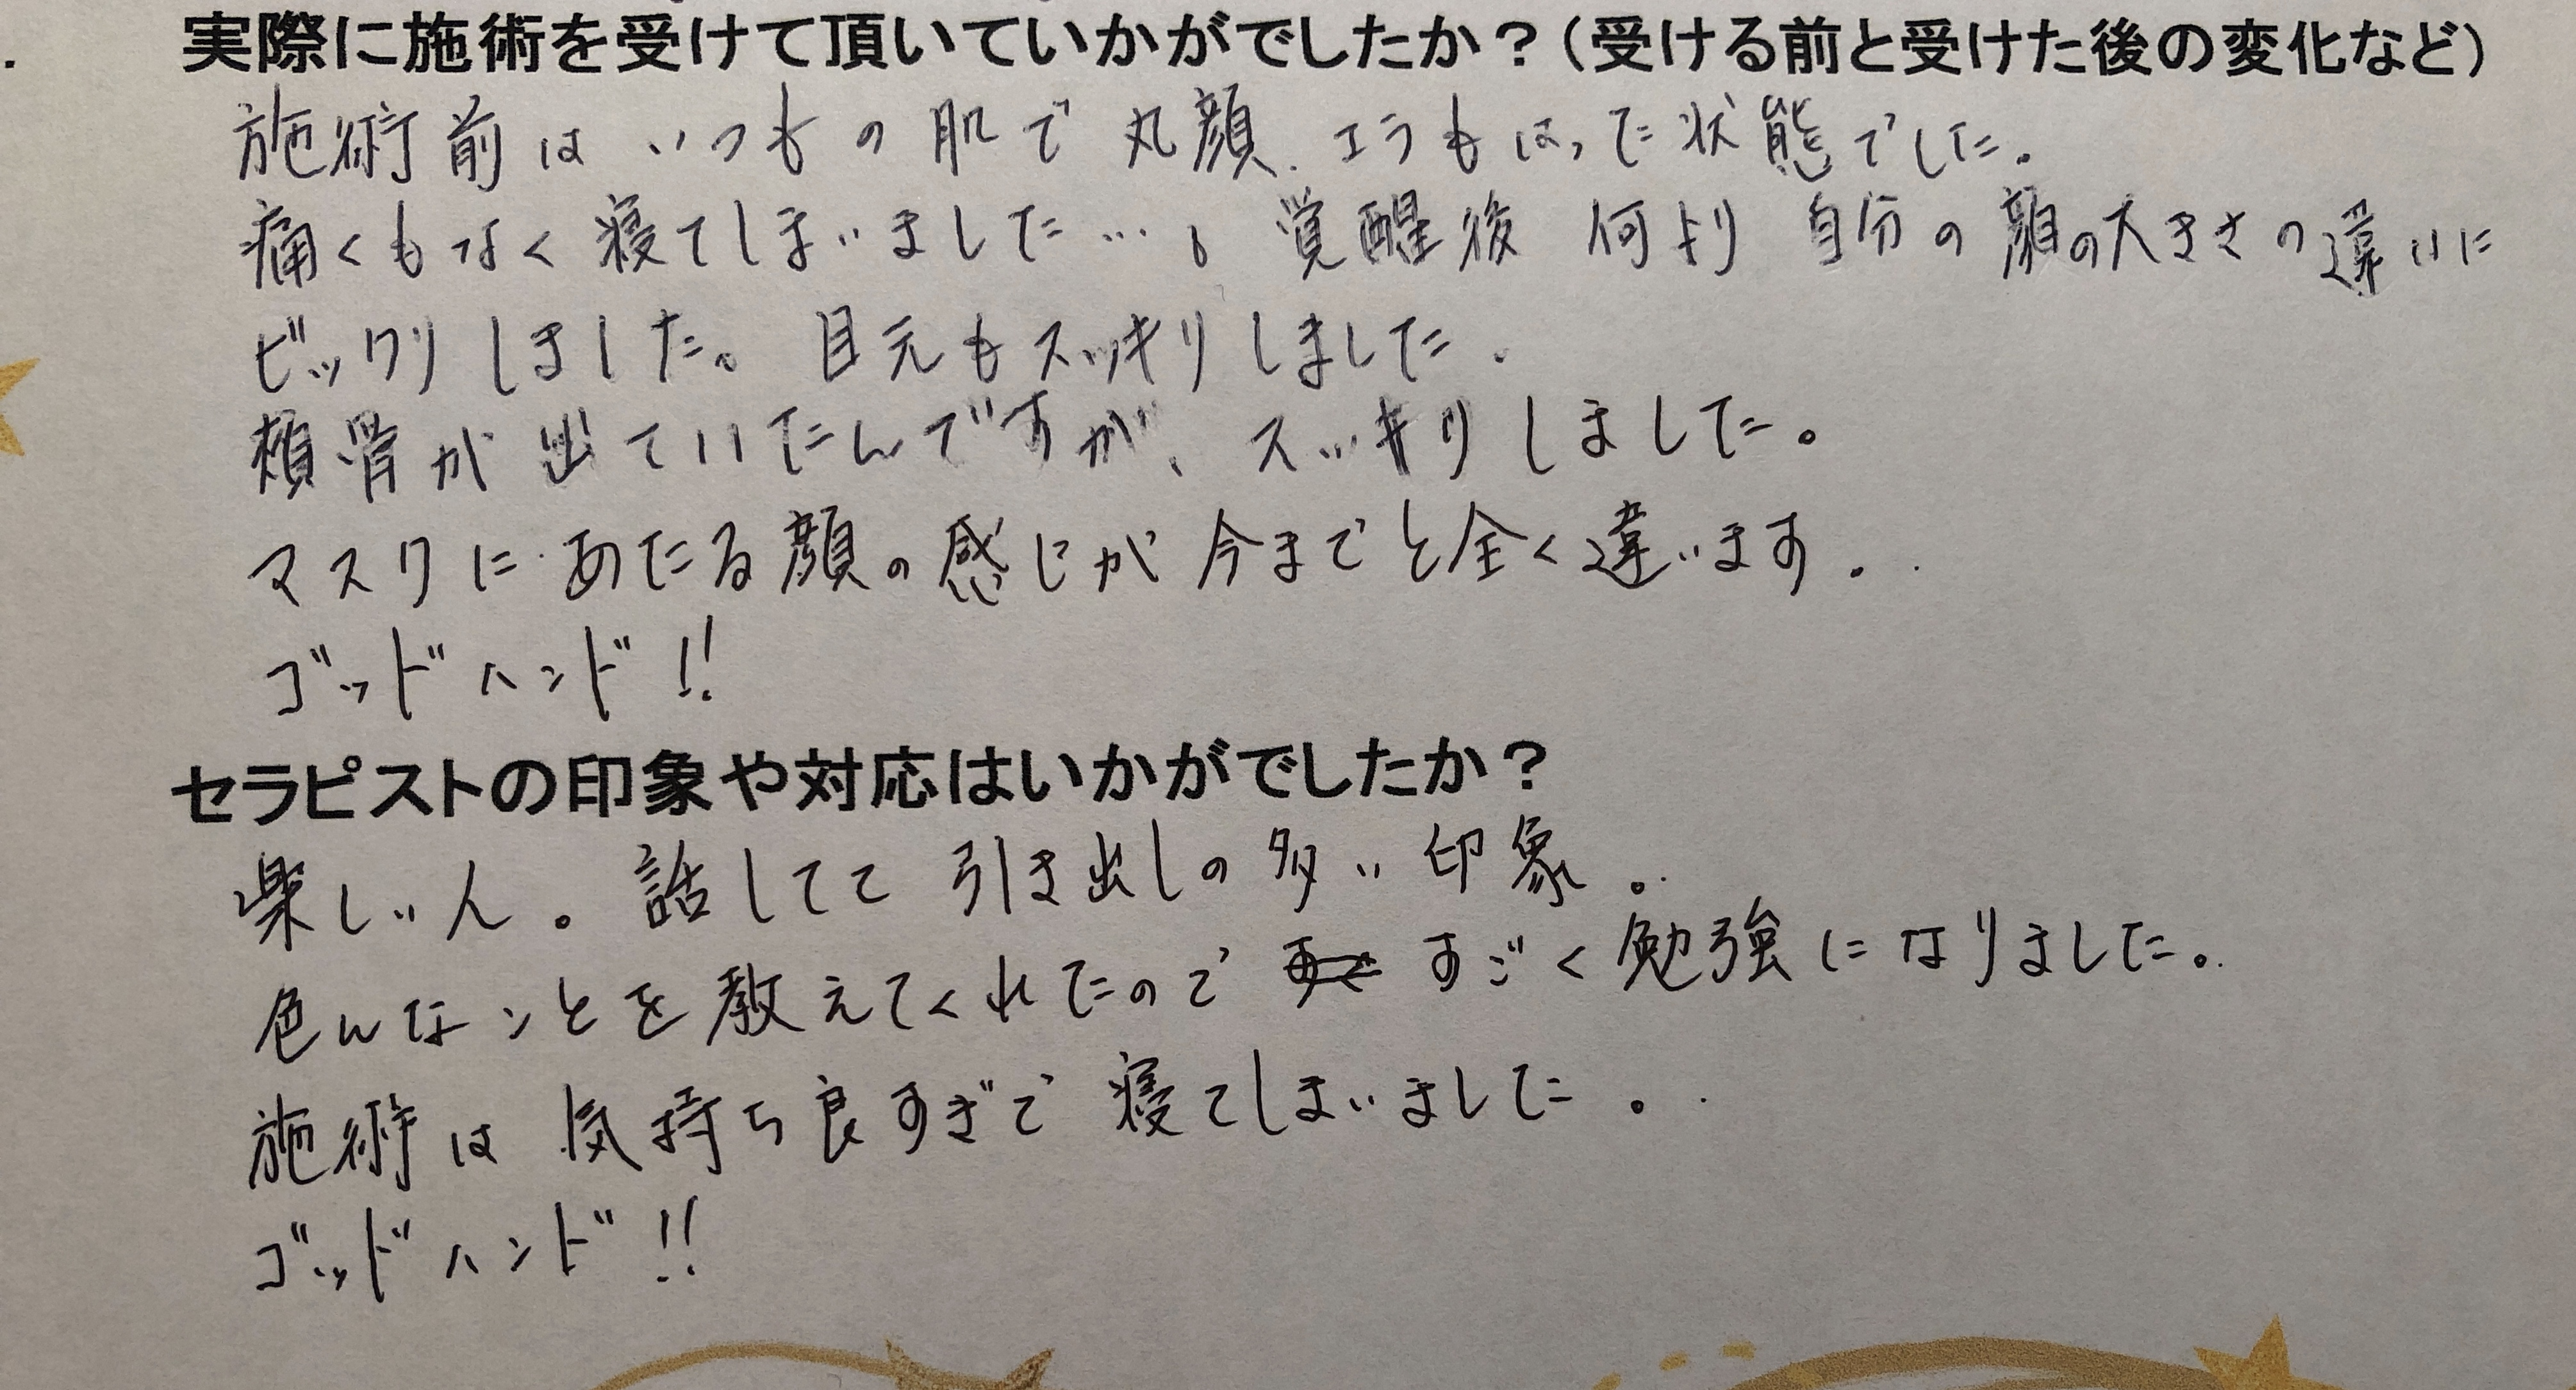 実際に施術を受けて頂いていかがでしたか？（受ける前と受けた後の変化など）
施術前は いつもの肌で 丸顔、エラもはった状態でした。
痛くもなく寝てしまいました…。覚醒後 何より 自分の顔の大きさの違いに
ビックリしました。目元もスッキリしました。
頬骨が出ていたんですが、スッキリしました。
マスクにあたる顔の感じが今までと全く違います。
ゴッドハンド!!
セラピストの印象や対応はいかがでしたか？
楽しい人。話してて 引き出しの多い印象。
色んなことを教えてくれたので すごく勉強になりました。
施術は気持ち良すぎて寝てしまいました。
ゴッドハンド!!